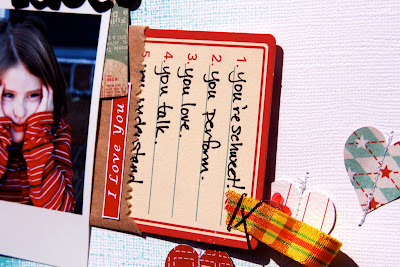 1. you're schweet!
2. you perform.
3. you love.
4. you talk.
5. you understand
I Love You